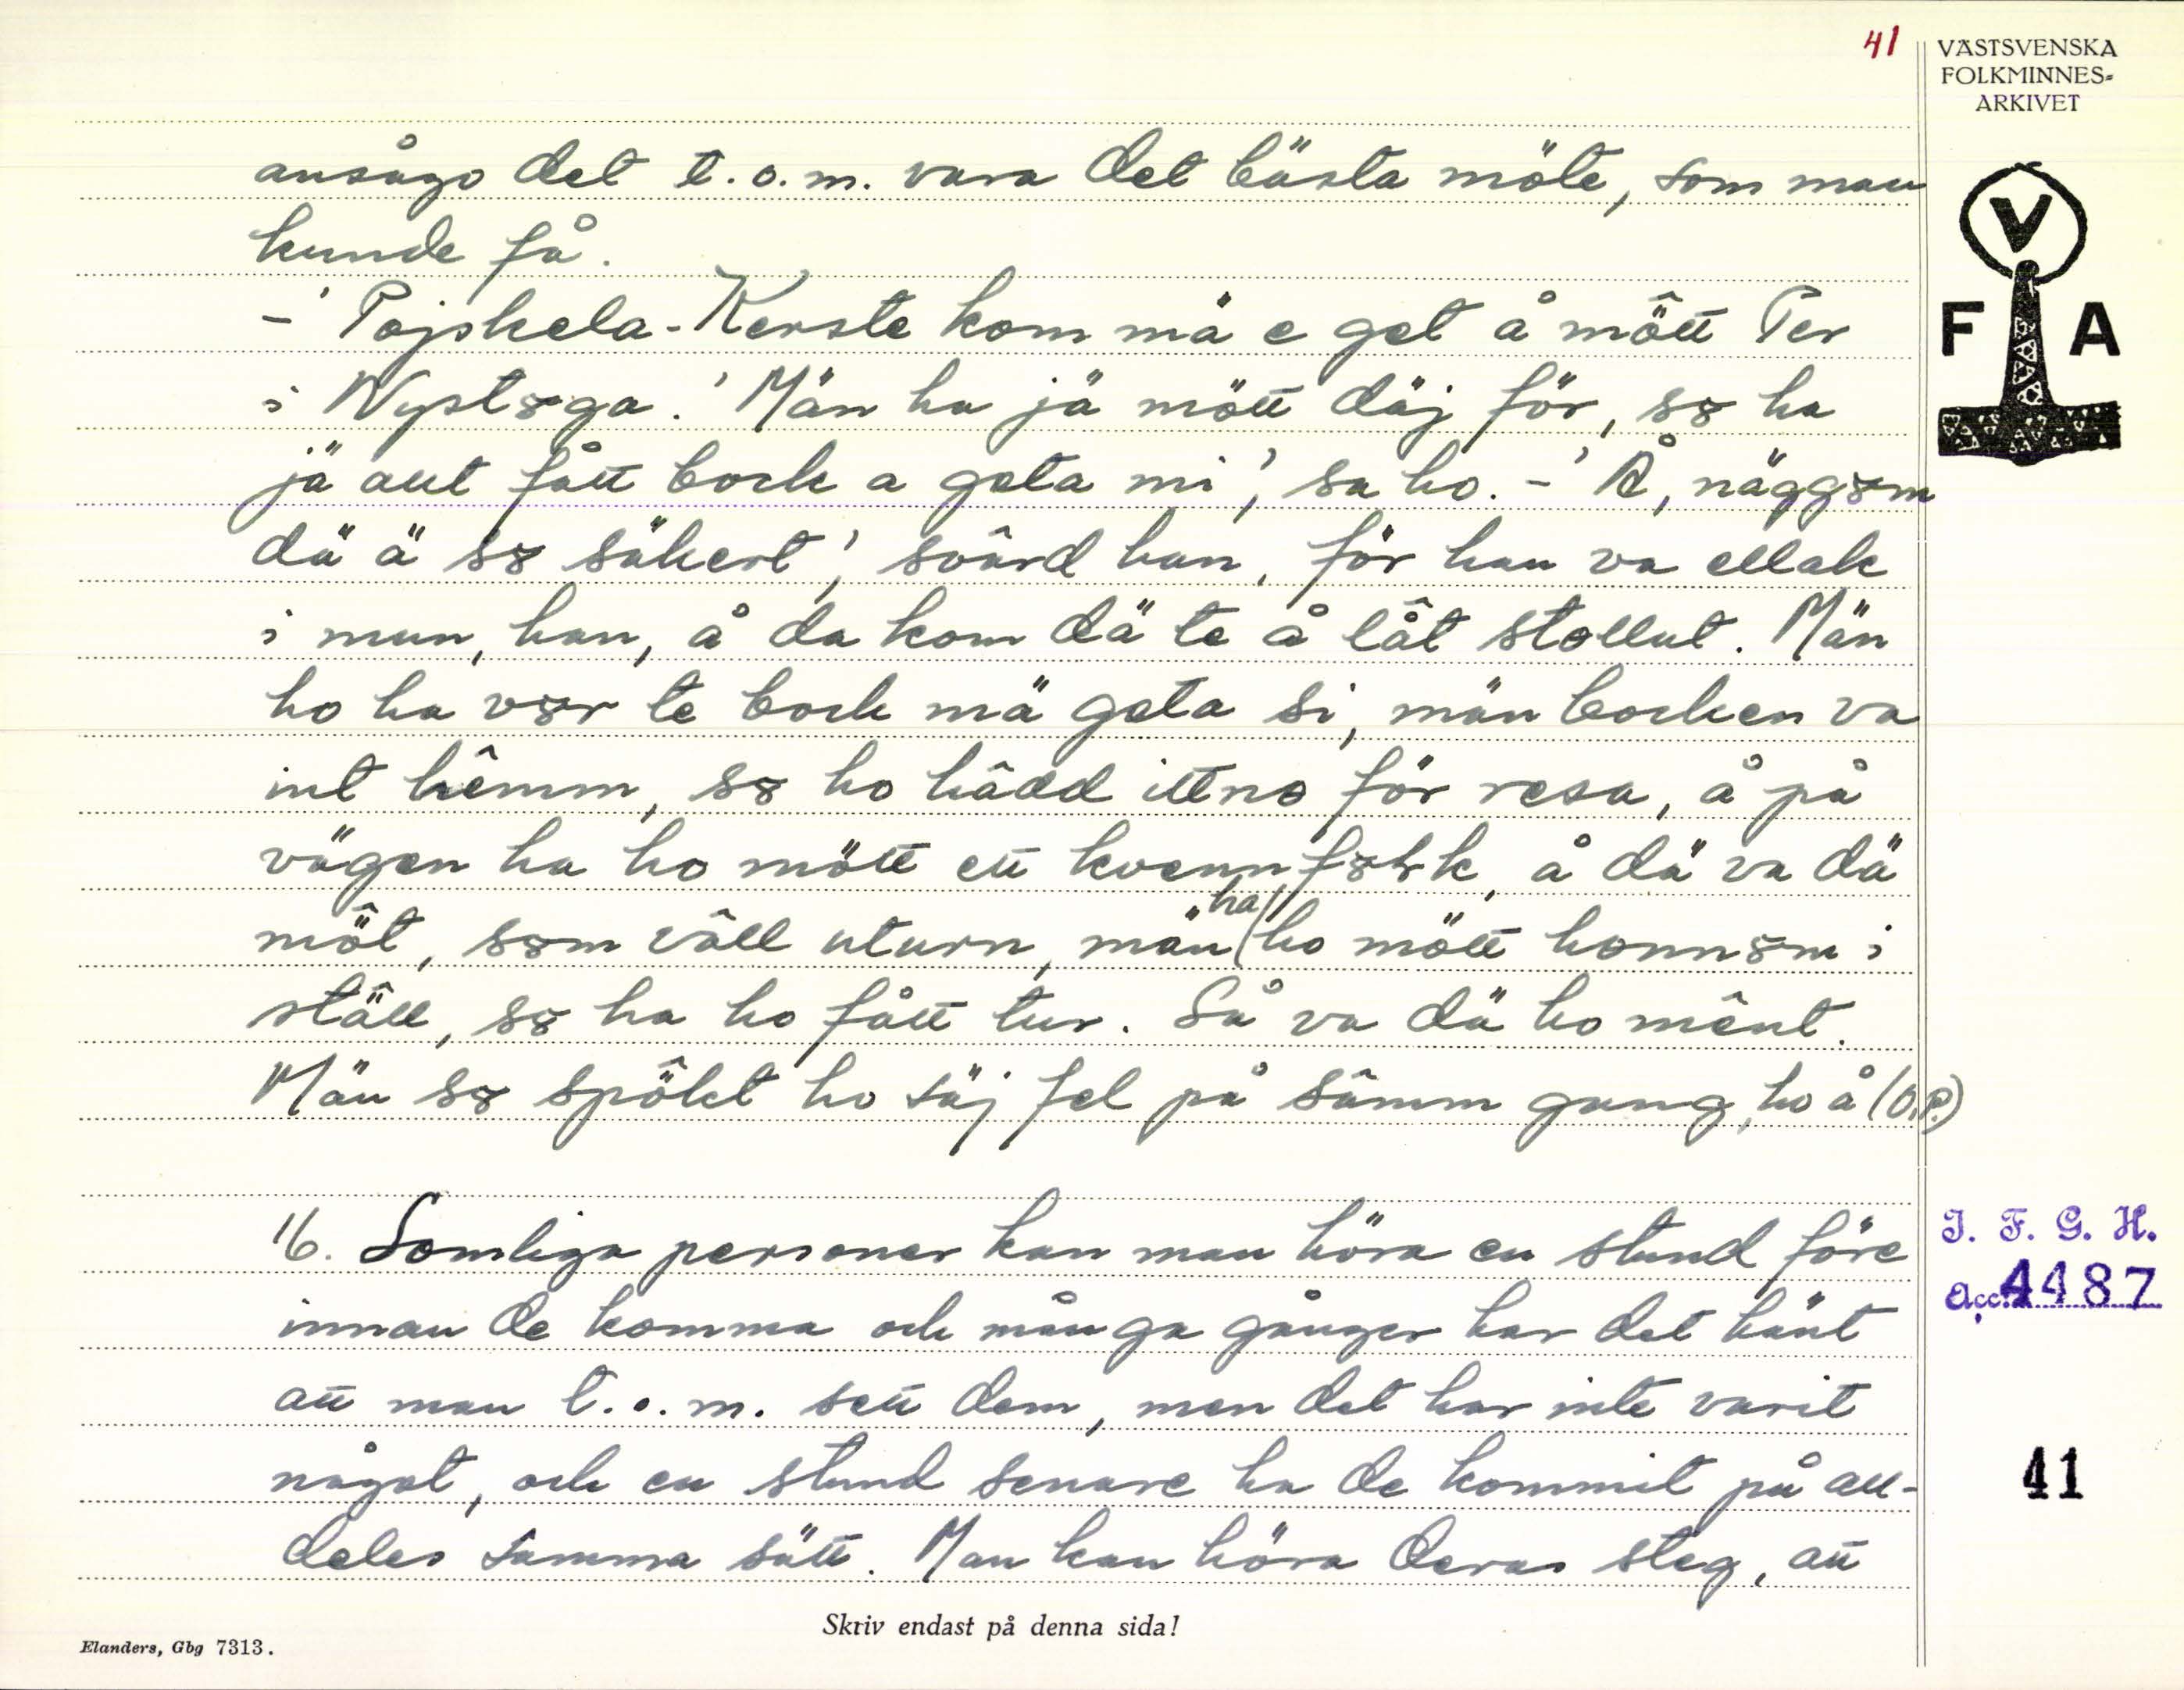 41
VÄSTSVENSKA
FOLKMINNES-
ARKIVET
V
F A
ansågo det t.o.m. vara det bästa möte, som man
kunde få.
-' Pojskela-Kerste kom mä e get å môtt Per
i Nystȣga. 'Män ha jä mött däj för, sȣ ha
jä allt fått bock a geta mi', sa ho. - 'Å, näggȣm
dä ä sȣ säkert', svârd han, för han va ellak
i mun, han, å da kom dä te å lât stollut. Män
ho ha vȣr te bock mä geta si, män bocken va
int hêmm, sȣ ho hâdd ittno för resa, å på
vägen ha ho mött ett kvennfȣlk, å dä va dä
möt, sȣm vâll uturn, män ha ho mött honnȣm i
ställ, sȣ ha ho fått tur. Så va dä ho mênt.
Män sȣ spôkt ho säj fel på sâmm gang, ho å (O.P.)
16. Somliga personer kan man höra en stund före
innan de komma och många gånger har det hänt
att man t.o.m. sett dem, men det har inte varit
något, och en stund senare ha de kommit på all-
deles samma sätt. Man kan höra deras steg, att
I. F. G. H.
Acc. 4487
41
Skriv endast på denna sida!
Elanders, Gbg 7313.